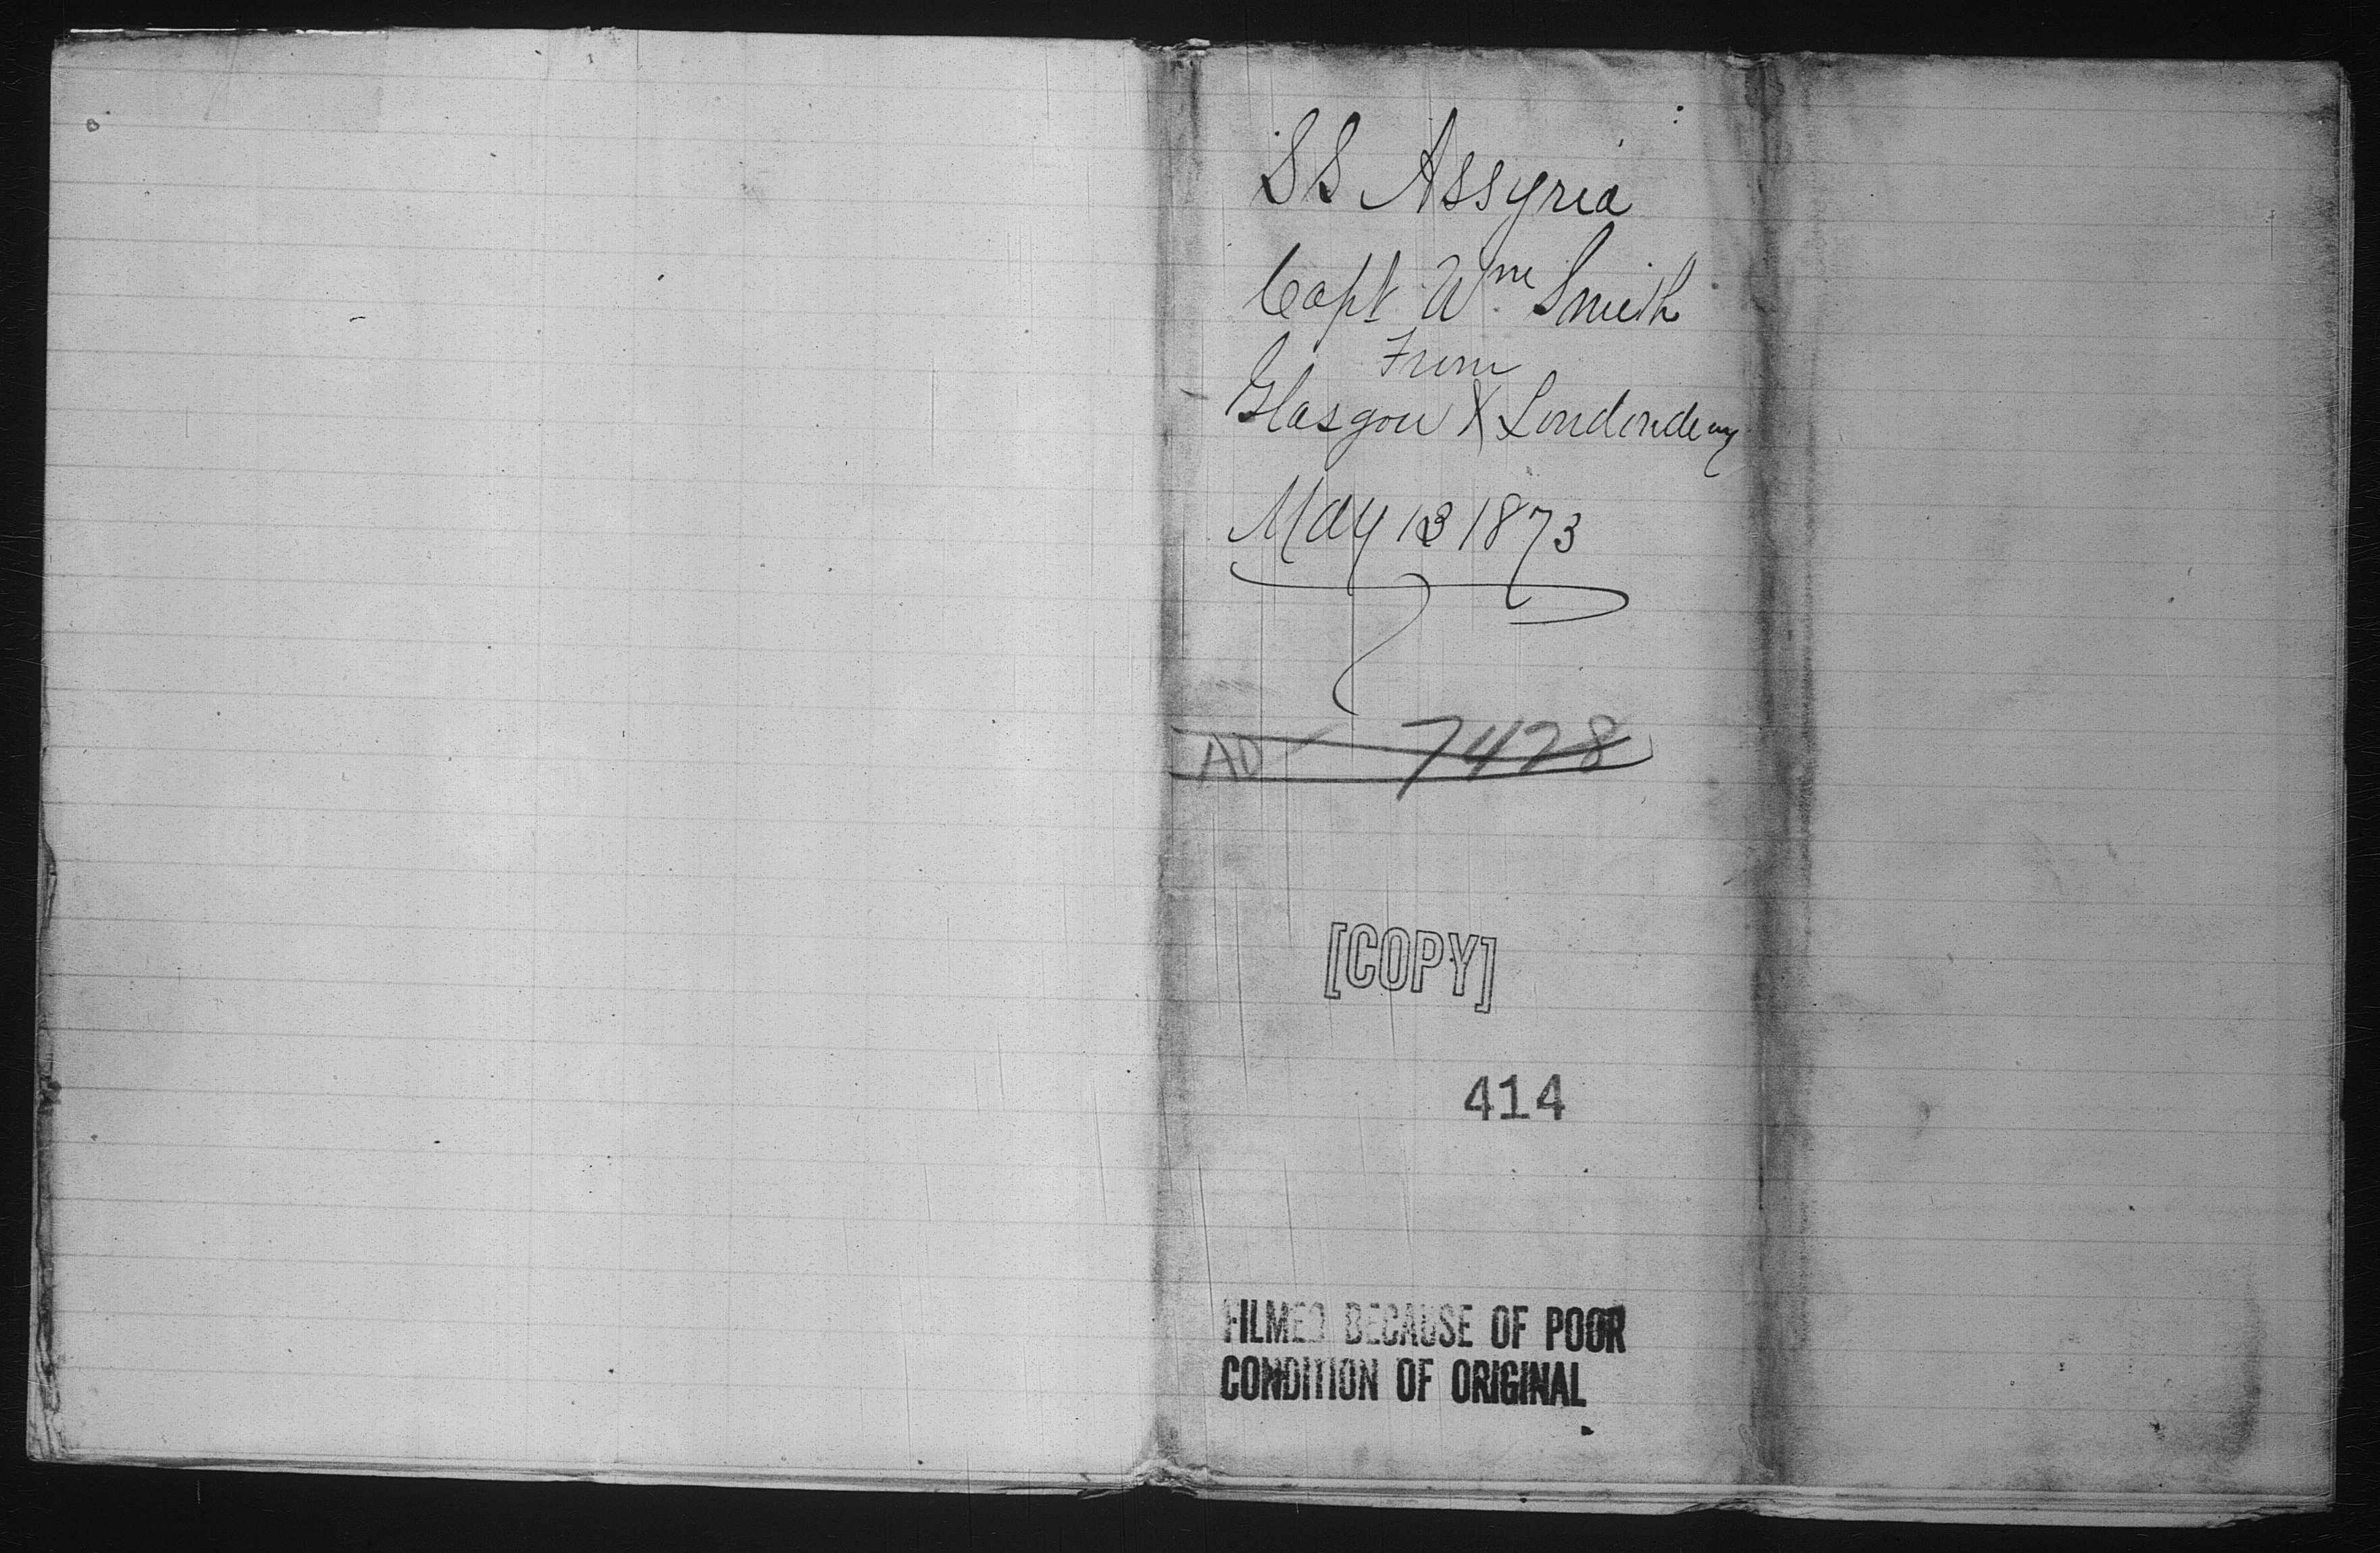 SS Assyria
Capt Wm Smith
From
Glasgow & Londonderry
May 13 1873
AD 7428
[COPY]
414
FILMED BECAUSE OF POOR
CONDITION OF ORIGINAL